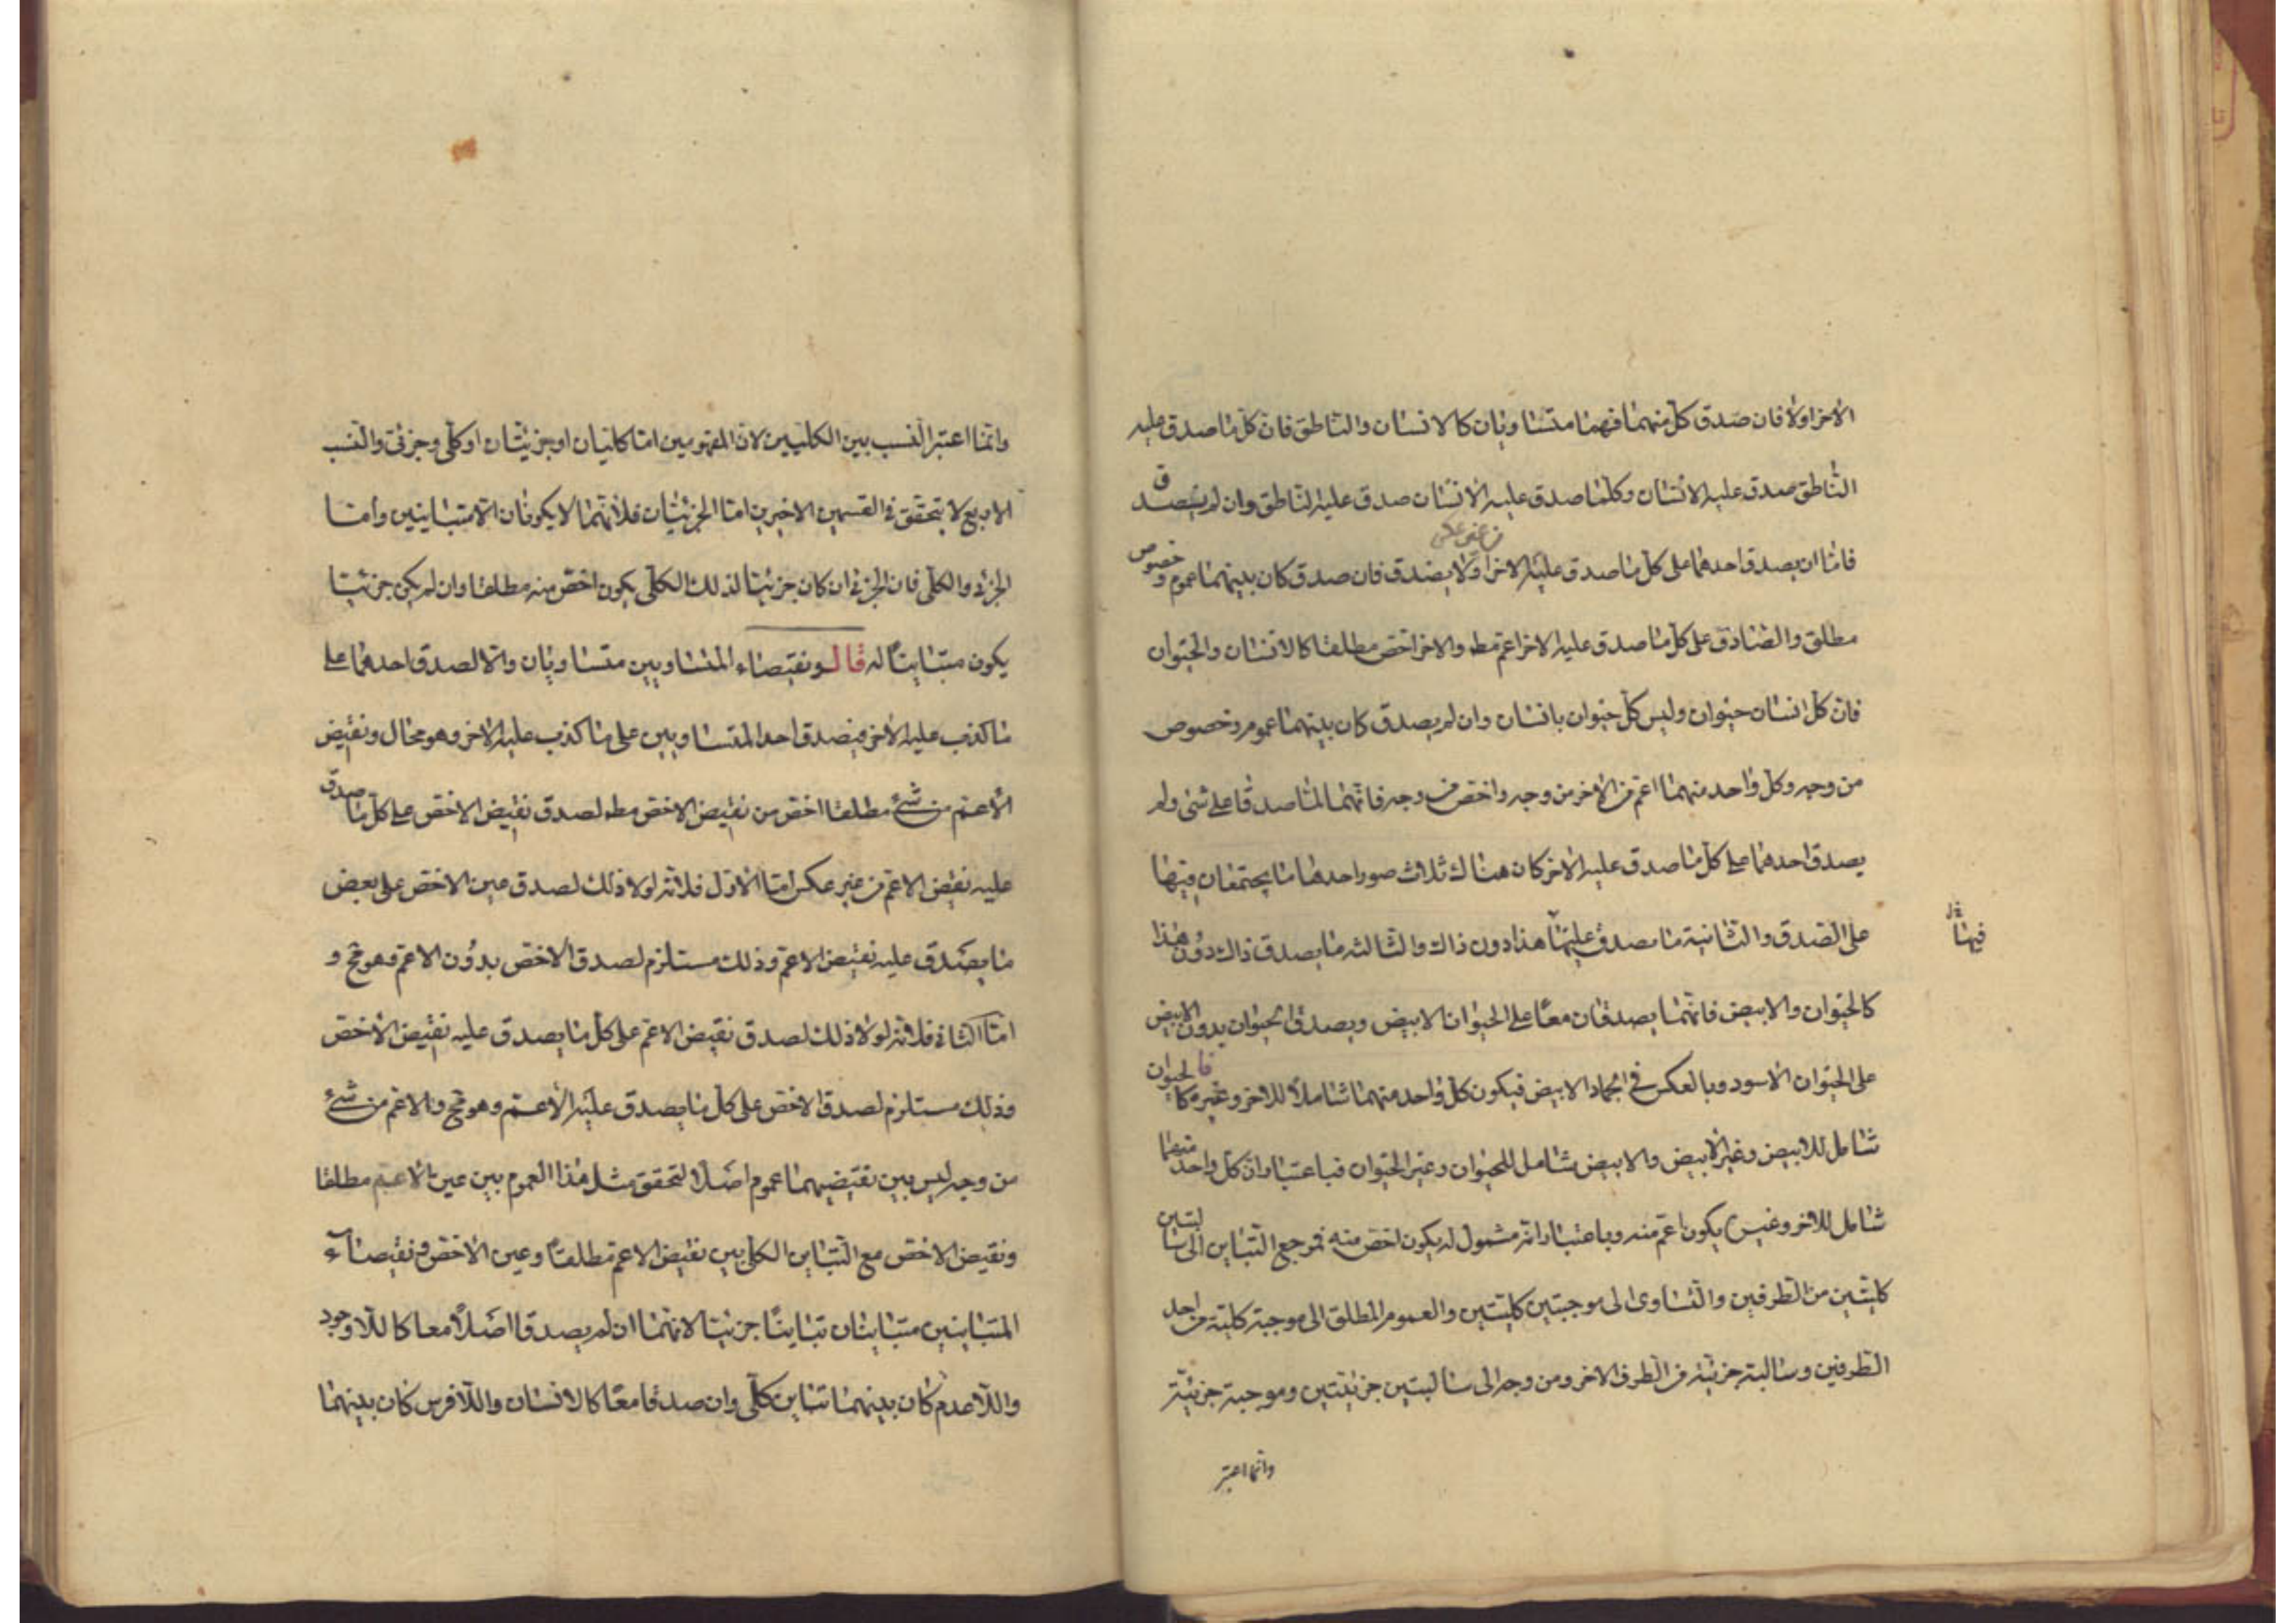 الاخر اولا فان صدق كل منهما فهما متساويان كالانسان والناطق فان كل ما صدق عليه
الناطق صدق عليه الانسان وكلما صدق عليه الانسان صدق عليه الناطق وان لم يصدق
فاما ان يصدق احدهما على كل ما صدق عليه الاخر اولا يصدق فان صدق كان بينهما عموم وخصوص
مطلق والصادق على كل ما صدق عليه الاخر اعم مط والاخر اخص مطلقا كالانسان والحيوان
فان كل انسان حيوان وليس كل حيوان بانسان وان لم يصدق كان بينهما عموم وخصوص
من وجه وكل واحد منهما اعم من الاخر من وجه واخص من وجه فانهما لما صدقا على شئ ولم
يصدق احدهما على كل ما صدق عليه الاخر كان هناك ثلاث صور احدها ما يجتمعان فيها
على الصدق والثانية ما يصدق عليها هذا دون ذاك والثالثه ما يصدق ذاك دون هذا
فيها
كالحيوان والابيض فانهما يصدقان معا على الحيوان الابيض ويصدق الحيوان بدون الابيض
على الحيوان الاسود وبالعكس في الجماد الابيض فيكون كل واحد منهما شاملا للاخر وغيره فالحيوان
شامل للابيض وغير الابيض والابيض شامل للحيوان وغير الحيوان فباعتبار ان كل واحد منهما
شامل للاخر وغيره يكون اعم منه وباعتبار انه مشمول له يكون اخص منه فمرجع التباين الى سالبتين
كليتين من الطرفين والتساوى الى موجبتين كليتين والعموم المطلق الى موجبة كلية من احد
الطرفين وسالبة جزئية من الطرف الاخر ومن وجه الى سالبتين جزئيتين وموجبة جزئية
وانما اعتبر
وانما اعتبر النسب بين الكليين لان المفهومين اما كليان او جزئيان او كلى وجزئى والنسب
الاربع لا يتحقق في القسمين الاخيرين اما الجزئيان فلانهما لا يكونان الا متباينين واما
الجزئى والكلى فان الجزئى ان كان جزئيا لذلك الكلى يكون اخص منه مطلقا وان لم يكن جزئيا
يكون متباينا له قال ونقيضاء المتساويين متساويان والا لصدق احدهما على
ما كذب عليه الاخر فيصدق احد المتساويين على ما كذب عليه الاخر وهو محال ونقيض
الاعم من شئ مطلقا اخص من نقيض الاخص مط لصدق نقيض الاخص على كل ما صدق
عليه نقيض الاعم من غير عكس اما الاول فلانه لولا ذلك لصدق عين الاخص على بعض
ما يصدق عليه نقيض الاعم وذلك مستلزم لصدق الاخص بدون الاعم وهو مح و
اما الثانى فلانه لولا ذلك لصدق نقيض الاعم على كل ما يصدق عليه نقيض الاخص
وذلك مستلزم لصدق الاخص على كل ما يصدق عليه الاعم وهو مح والاعم من شئ
من وجه ليس بين نقيضيهما عموم اصلا لتحقق مثل هذا العموم بين عين الاعم مطلقا
ونقيض الاخص مع التباين الكلى بين نقيض الاعم مطلقا وعين الاخص ونقيضاء
المتباينين متباينان تباينا جزئيا لانهما ان لم يصدقا اصلا معا كاللا وجود
واللا عدم كان بينهما تباين كلى وان صدقا معا كالانسان واللافرس كان بينهما